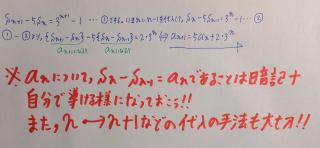 S_{n+1} - 5S_n = 3^{n+1} - 1 … ① ①でnにn-1を代入して、S_n - 5S_{n-1} = 3^n - 1 … ②
① - ②より、S_{n+1} - S_n - 5(S_n - S_{n-1}) = 2・3^n ⇔ a_{n+1} = 5a_n + 2・3^n
※ a_nについて、S_n - S_{n-1} = a_nであることは暗記+
自分で導ける様になっておこう!!
また、n ↔ n+1などの代入の手法も大切!!